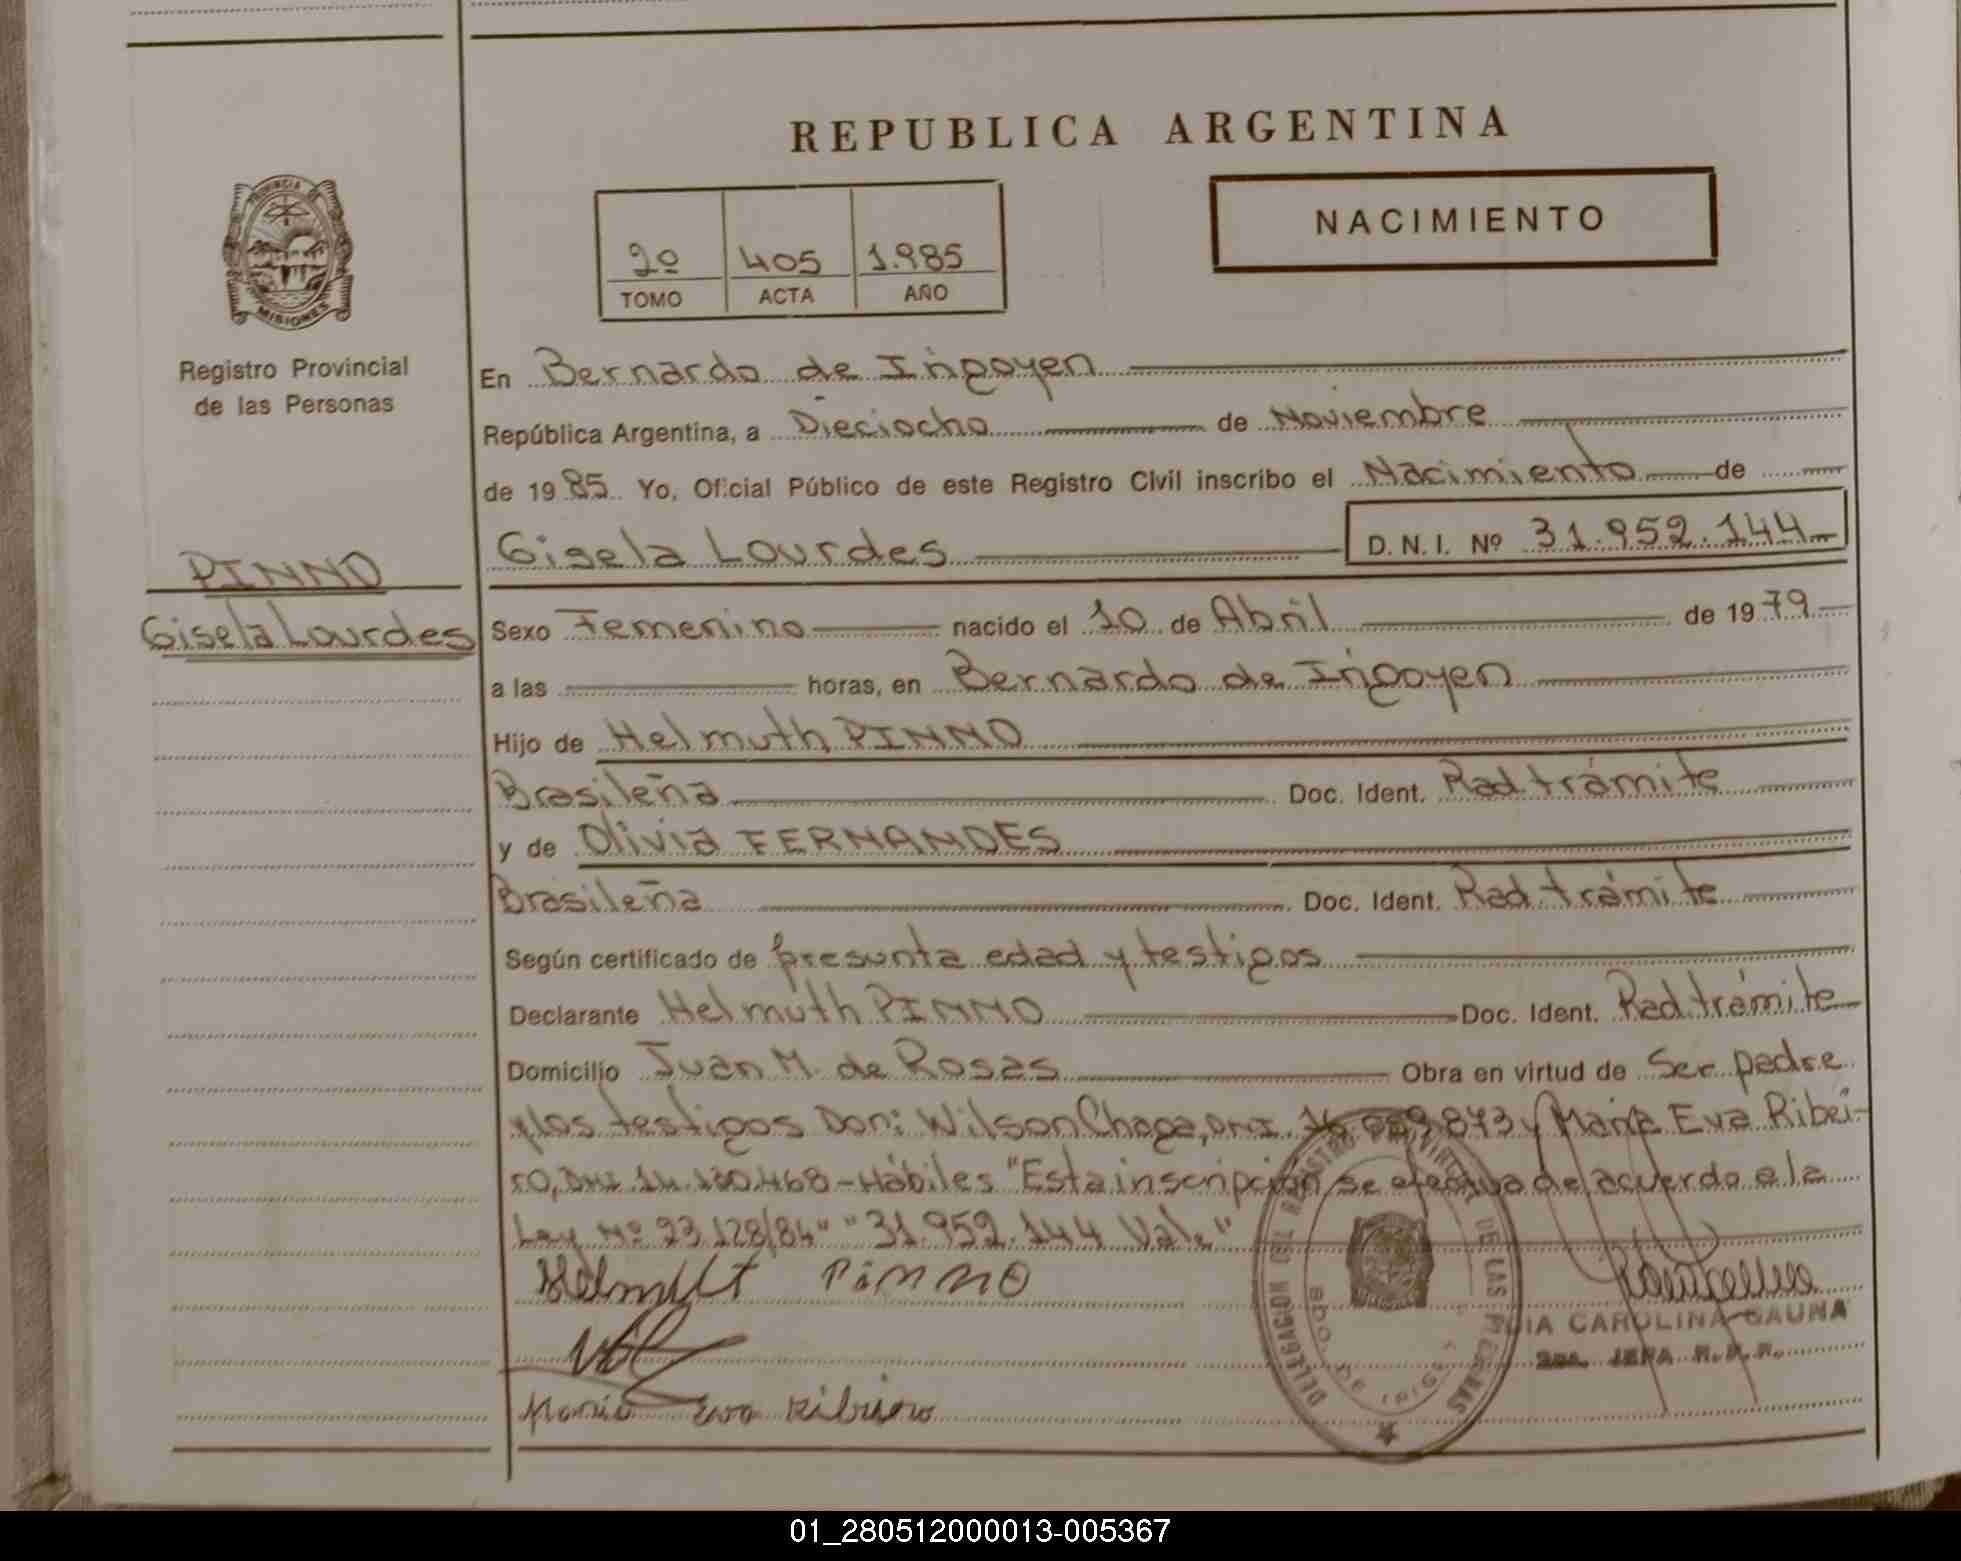 REPUBLICA ARGENTINA
NACIMIENTO
2º 405 1.985
TOMO ACTA AÑO
PROVINCIA DE
MISIONES
Registro Provincial
de las Personas
PINNO
Gisela Lourdes
En Bernardo de Irigoyen
República Argentina, a Dieciocho de Noviembre
de 1985 Yo, Oficial Público de este Registro Civil inscribo el Nacimiento de
Gisela Lourdes D. N. I. Nº 31.952.144
Sexo Femenino nacido el 10 de Abril de 1979
a las horas, en Bernardo de Irigoyen
Hijo de Helmuth PINNO
Brasileña Doc. Ident. Rad. trámite
y de Olivia FERNANDES
Brasileña Doc. Ident. Rad. trámite
Según certificado de presunta edad y testigos
Declarante Helmuth PINNO Doc. Ident. Rad. trámite
Domicilio Juan M. de Rosas Obra en virtud de Ser padre
y los testigos Don: Wilson Chaga, DNI. 873 y María Eva Ribei-
ro, DNI. 14.130.468 - Hábiles "Esta inscripción se efectua de acuerdo a la
Ley Nº 23.128/84" "31.952.144 Vale"
Helmut PiNNO
Maria Eva Ribeiro
DELEGACION DEL REGISTRO PROVINCIAL DE LAS PERSONAS
BDO. DE IRIG
CAROLINA GAUNA
JEFA R. P. P.
01_280512000013-005367